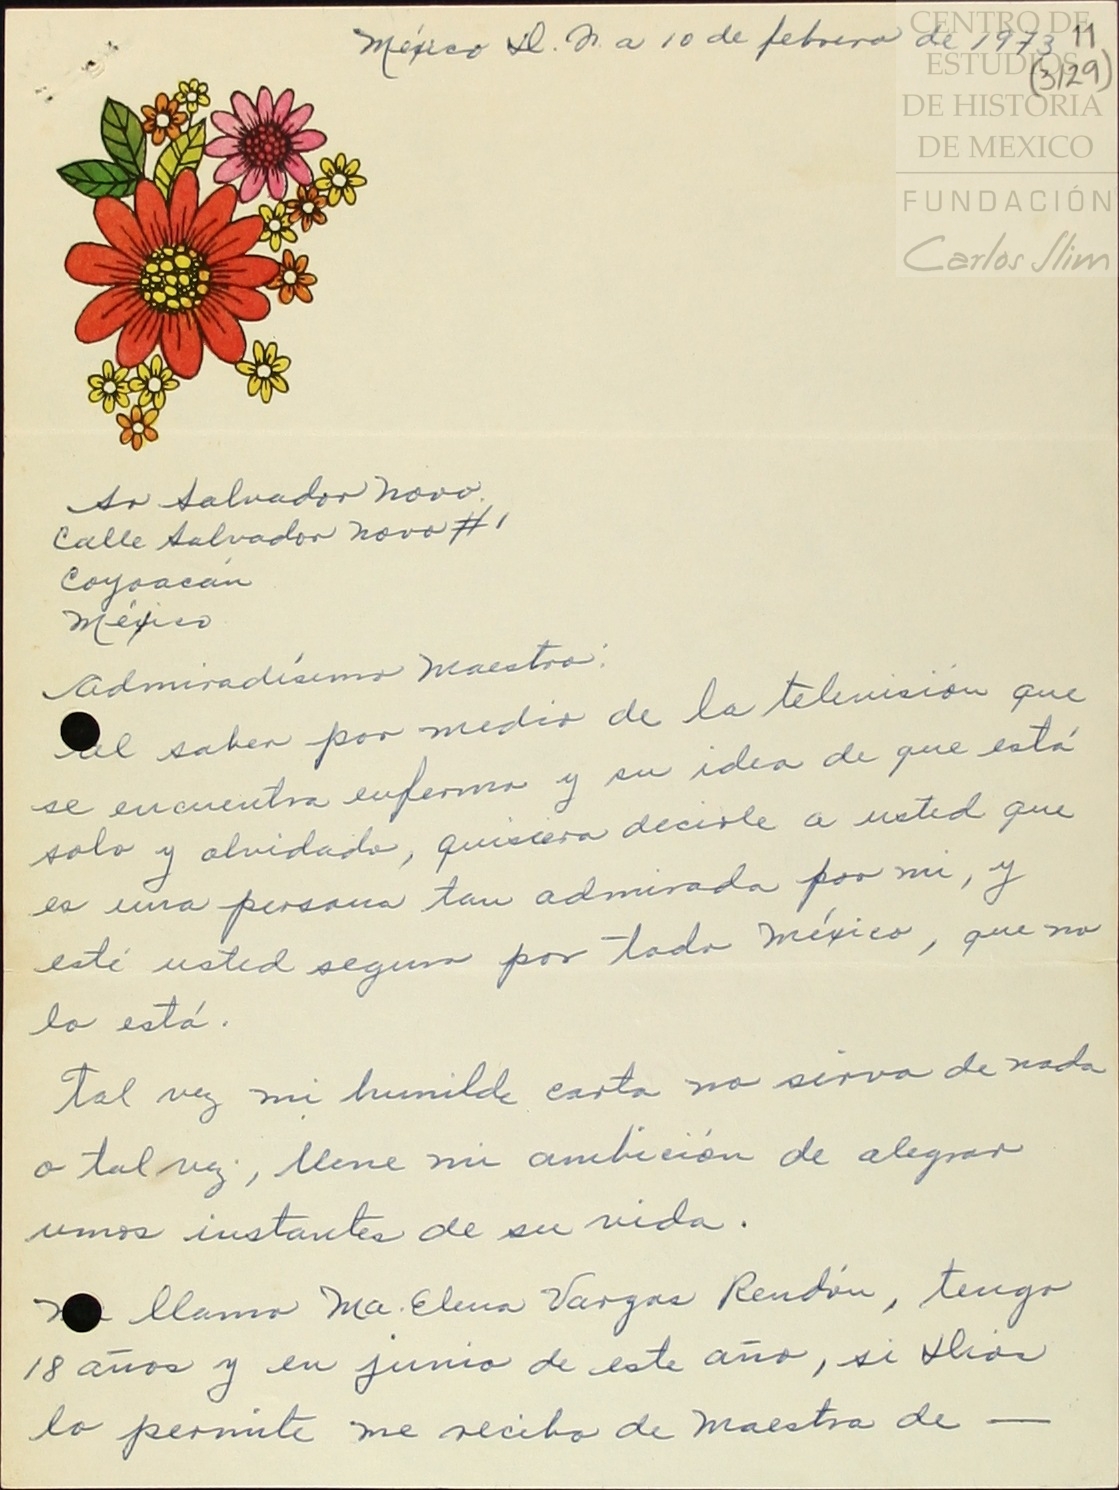 México D. F. a 10 de febrero de 1973
11
(3/29)
CENTRO DE
ESTUDIOS
DE HISTORIA
DE MEXICO
FUNDACIÓN
Carlos Slim
Sr Salvador Novo.
Calle Salvador Novo #1
Coyoacán
México
Admiradísimo Maestro:
Al saber por medio de la televisión que
se encuentra enfermo y su idea de que está
solo y olvidado, quisiera decirle a usted que
es una persona tan admirada por mi, y
esté usted seguro por todo México, que no
lo está.
Tal vez mi humilde carta no sirva de nada
o tal vez, llene mi ambición de alegrar
unos instantes de su vida.
Me llamo Ma. Elena Vargas Rendón, tengo
18 años y en junio de este año, si Dios
lo permite me recibo de Maestra de —